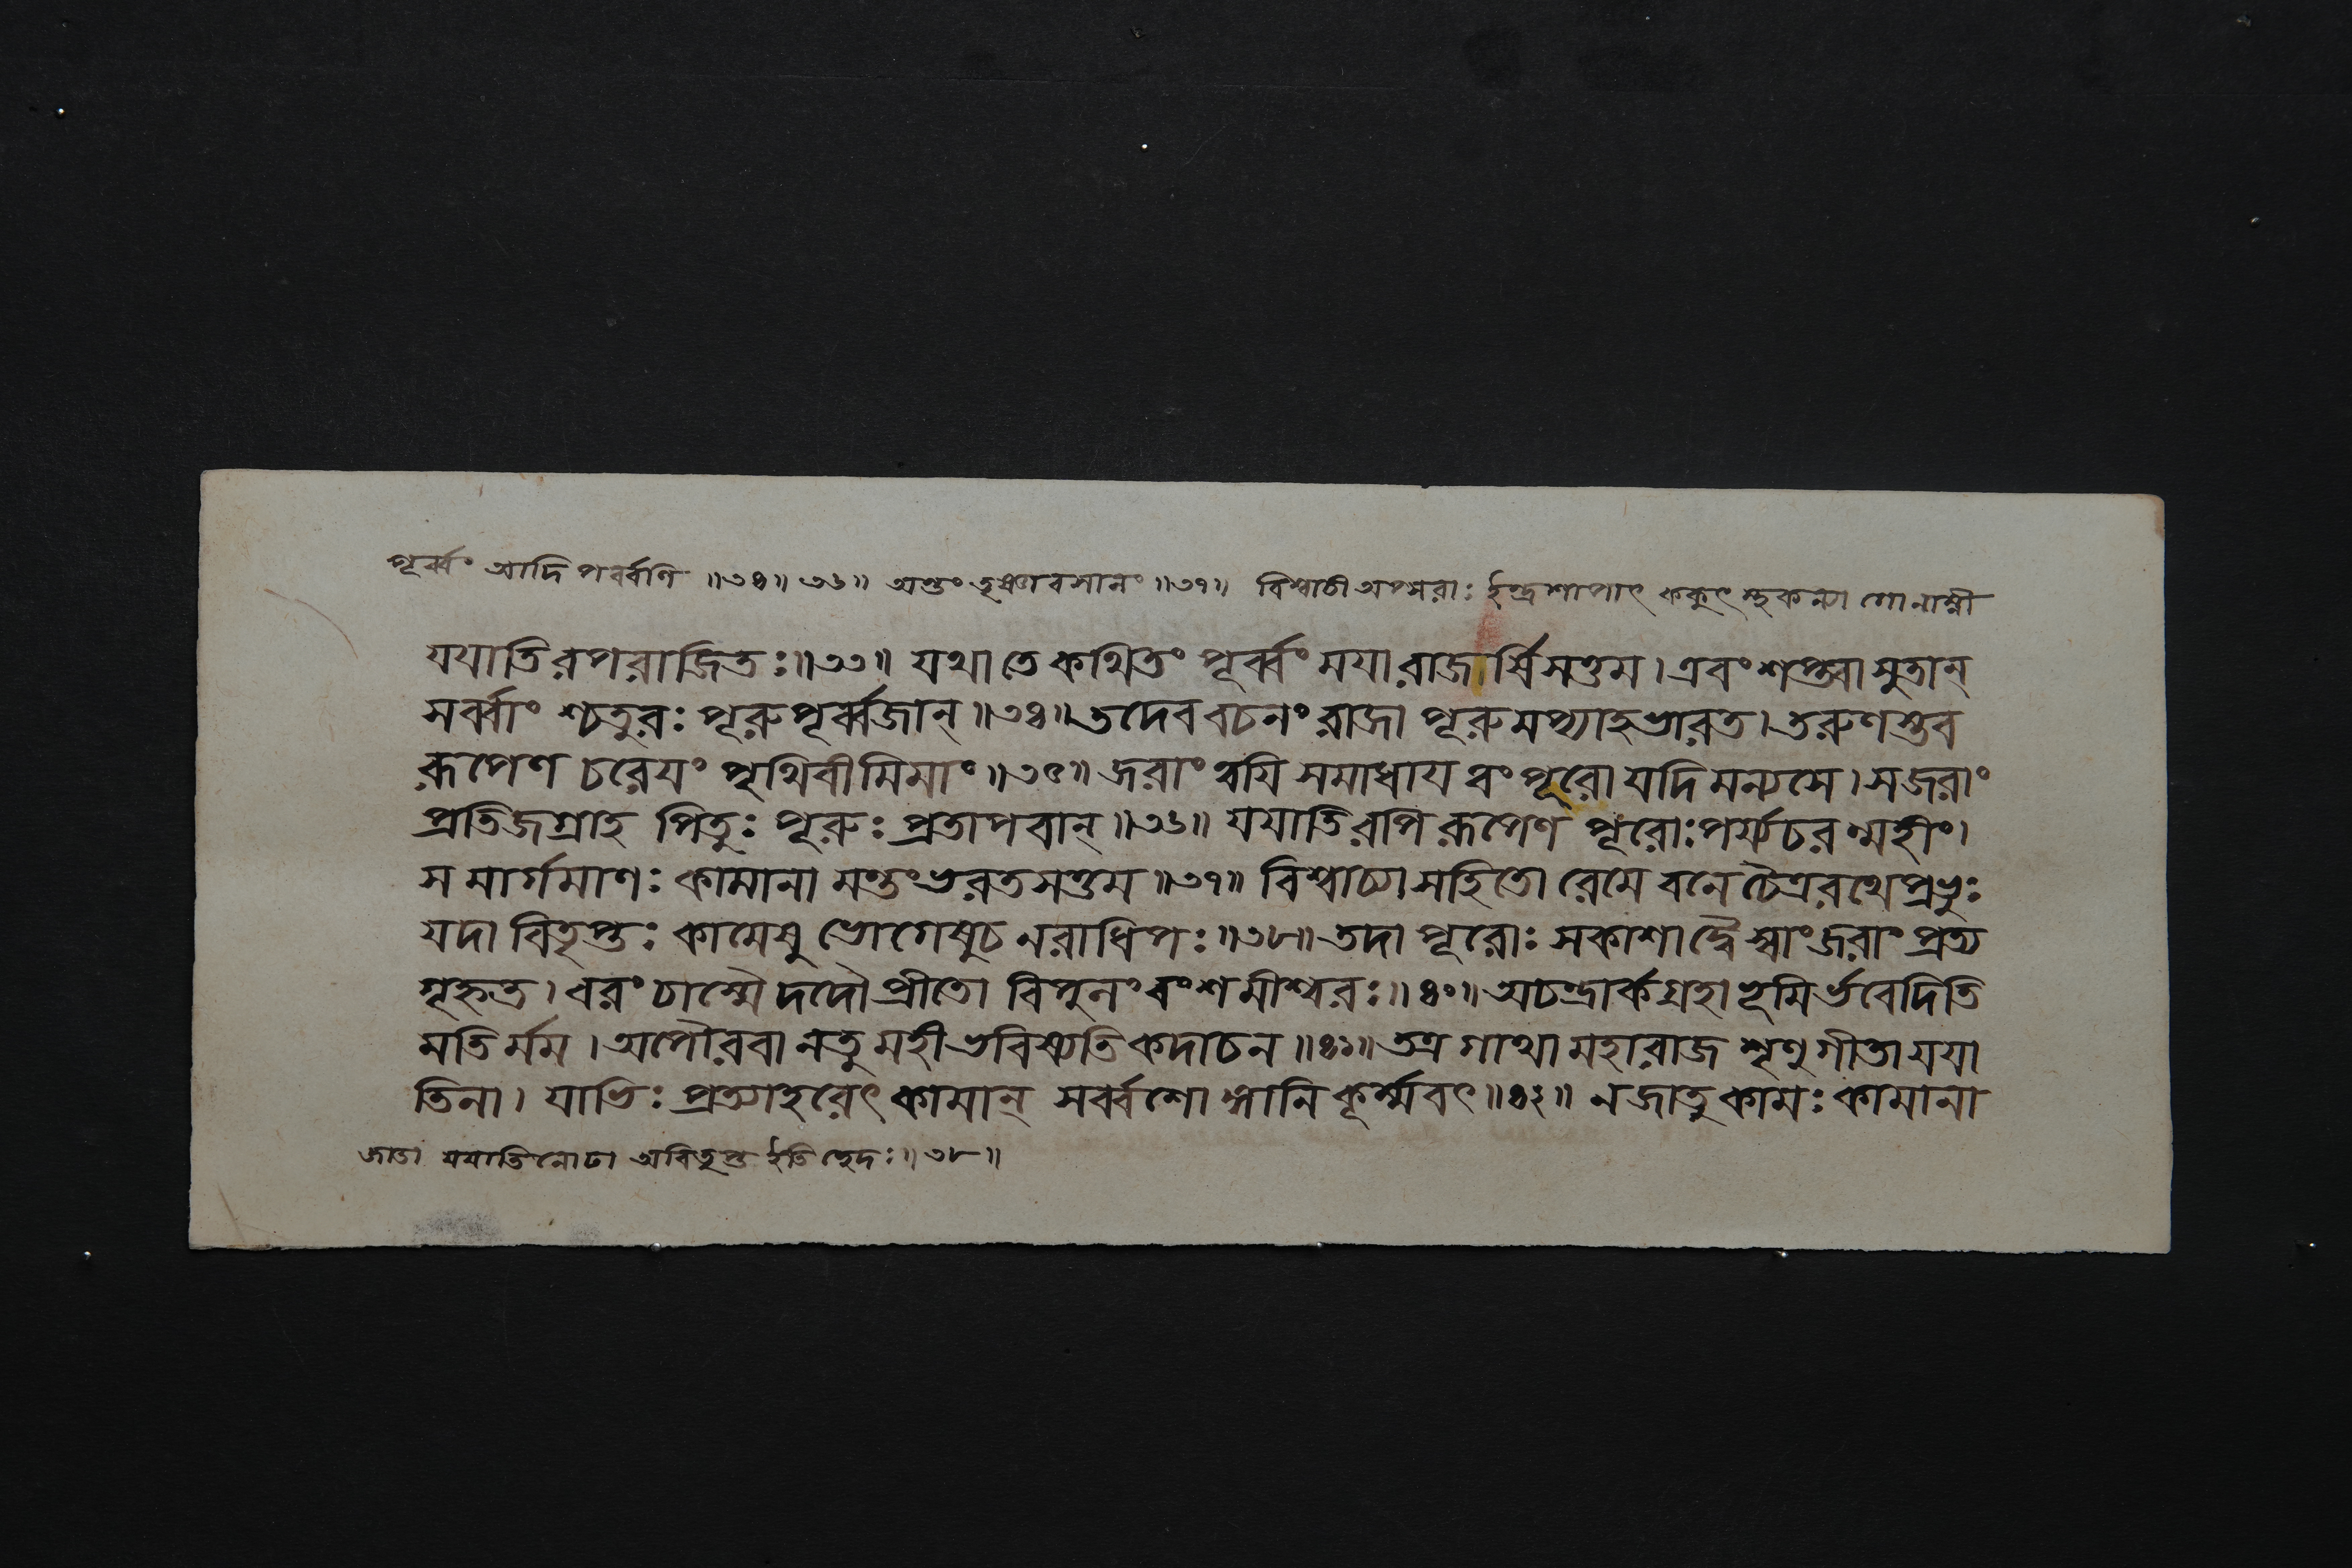 পূর্ব্বং আদিপর্ব্বণি ॥৩৪॥ ৩৬॥ অন্তং তৃষ্ণাবসানং ॥৩৭॥ বিশ্বাচী অপ্সরাঃ ইন্দ্রশাপাৎ ককুৎস্থকন্যা গোনাম্নী
যযাতিরপরাজিতঃ॥৩৩॥ যথা তে কথিতং পূর্ব্বং ময়া রাজর্ষিসত্তম। এবং শপ্ত্বা সুতান্
সর্ব্বাং শ্চতুরঃ পূরুপূর্ব্বজান্॥৩৪॥ তদেব বচনং রাজা পূরুমপ্যাহ ভারত। তরুণস্তব
রূপেণ চরেয়ং পৃথিবীমিমাং॥৩৫॥ জরাং ত্বয়ি সমাধায় ত্বং পূরো যদি মন্যসে। স জরাং
প্রতিজগ্রাহ পিতুঃ পূরুঃ প্রতাপবান্॥৩৬॥ যযাতিরপি রূপেণ পূরোঃ পর্য্যচরন্মহীং।
স মার্গমাণঃ কামানা মন্তং ভরতসত্তম॥৩৭॥ বিশ্বাচ্যা সহিতো রেমে বনে চৈত্ররথে প্রভুঃ
যদা বিতৃপ্তঃ কামেষু ভোগেষু চ নরাধিপঃ॥৩৮॥ তদা পূরোঃ সকাশাদ্বৈ স্বাং জরাং প্রত্য
গৃহ্নত। বরং চাস্মৈ দদৌ প্রীতো বিপুলং বংশমীশ্বরঃ॥৪০॥ অচন্দ্রার্কগ্রহা ভূমির্ভবেদিতি
মতির্মম। অপৌরবা নতু মহী ভবিষ্যতি কদাচন॥৪১॥ তত্র গাথা মহারাজ শৃণু গীতা যযা
তিনা। যাভিঃ প্রত্যাহরেৎ কামান্ সর্ব্বশো ঙ্গানি কূর্ম্মবৎ॥৪২॥ ন জাতু কামঃ কামানা
জাতা যযাতিনোঢা অবিতৃপ্ত ইতি ছেদঃ॥৩৮॥